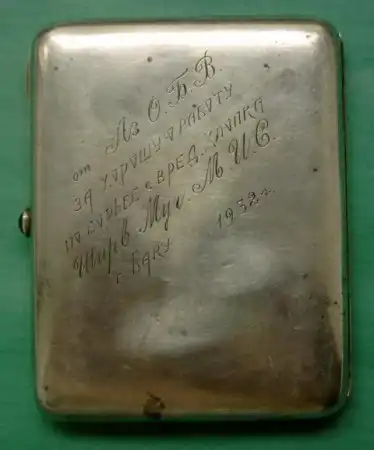 от Аз О.Б.В.
за харашую работу
по борьбе с вред. хлопка
Ширв. Муг. М.И.С.
г. Баку 1932 г.